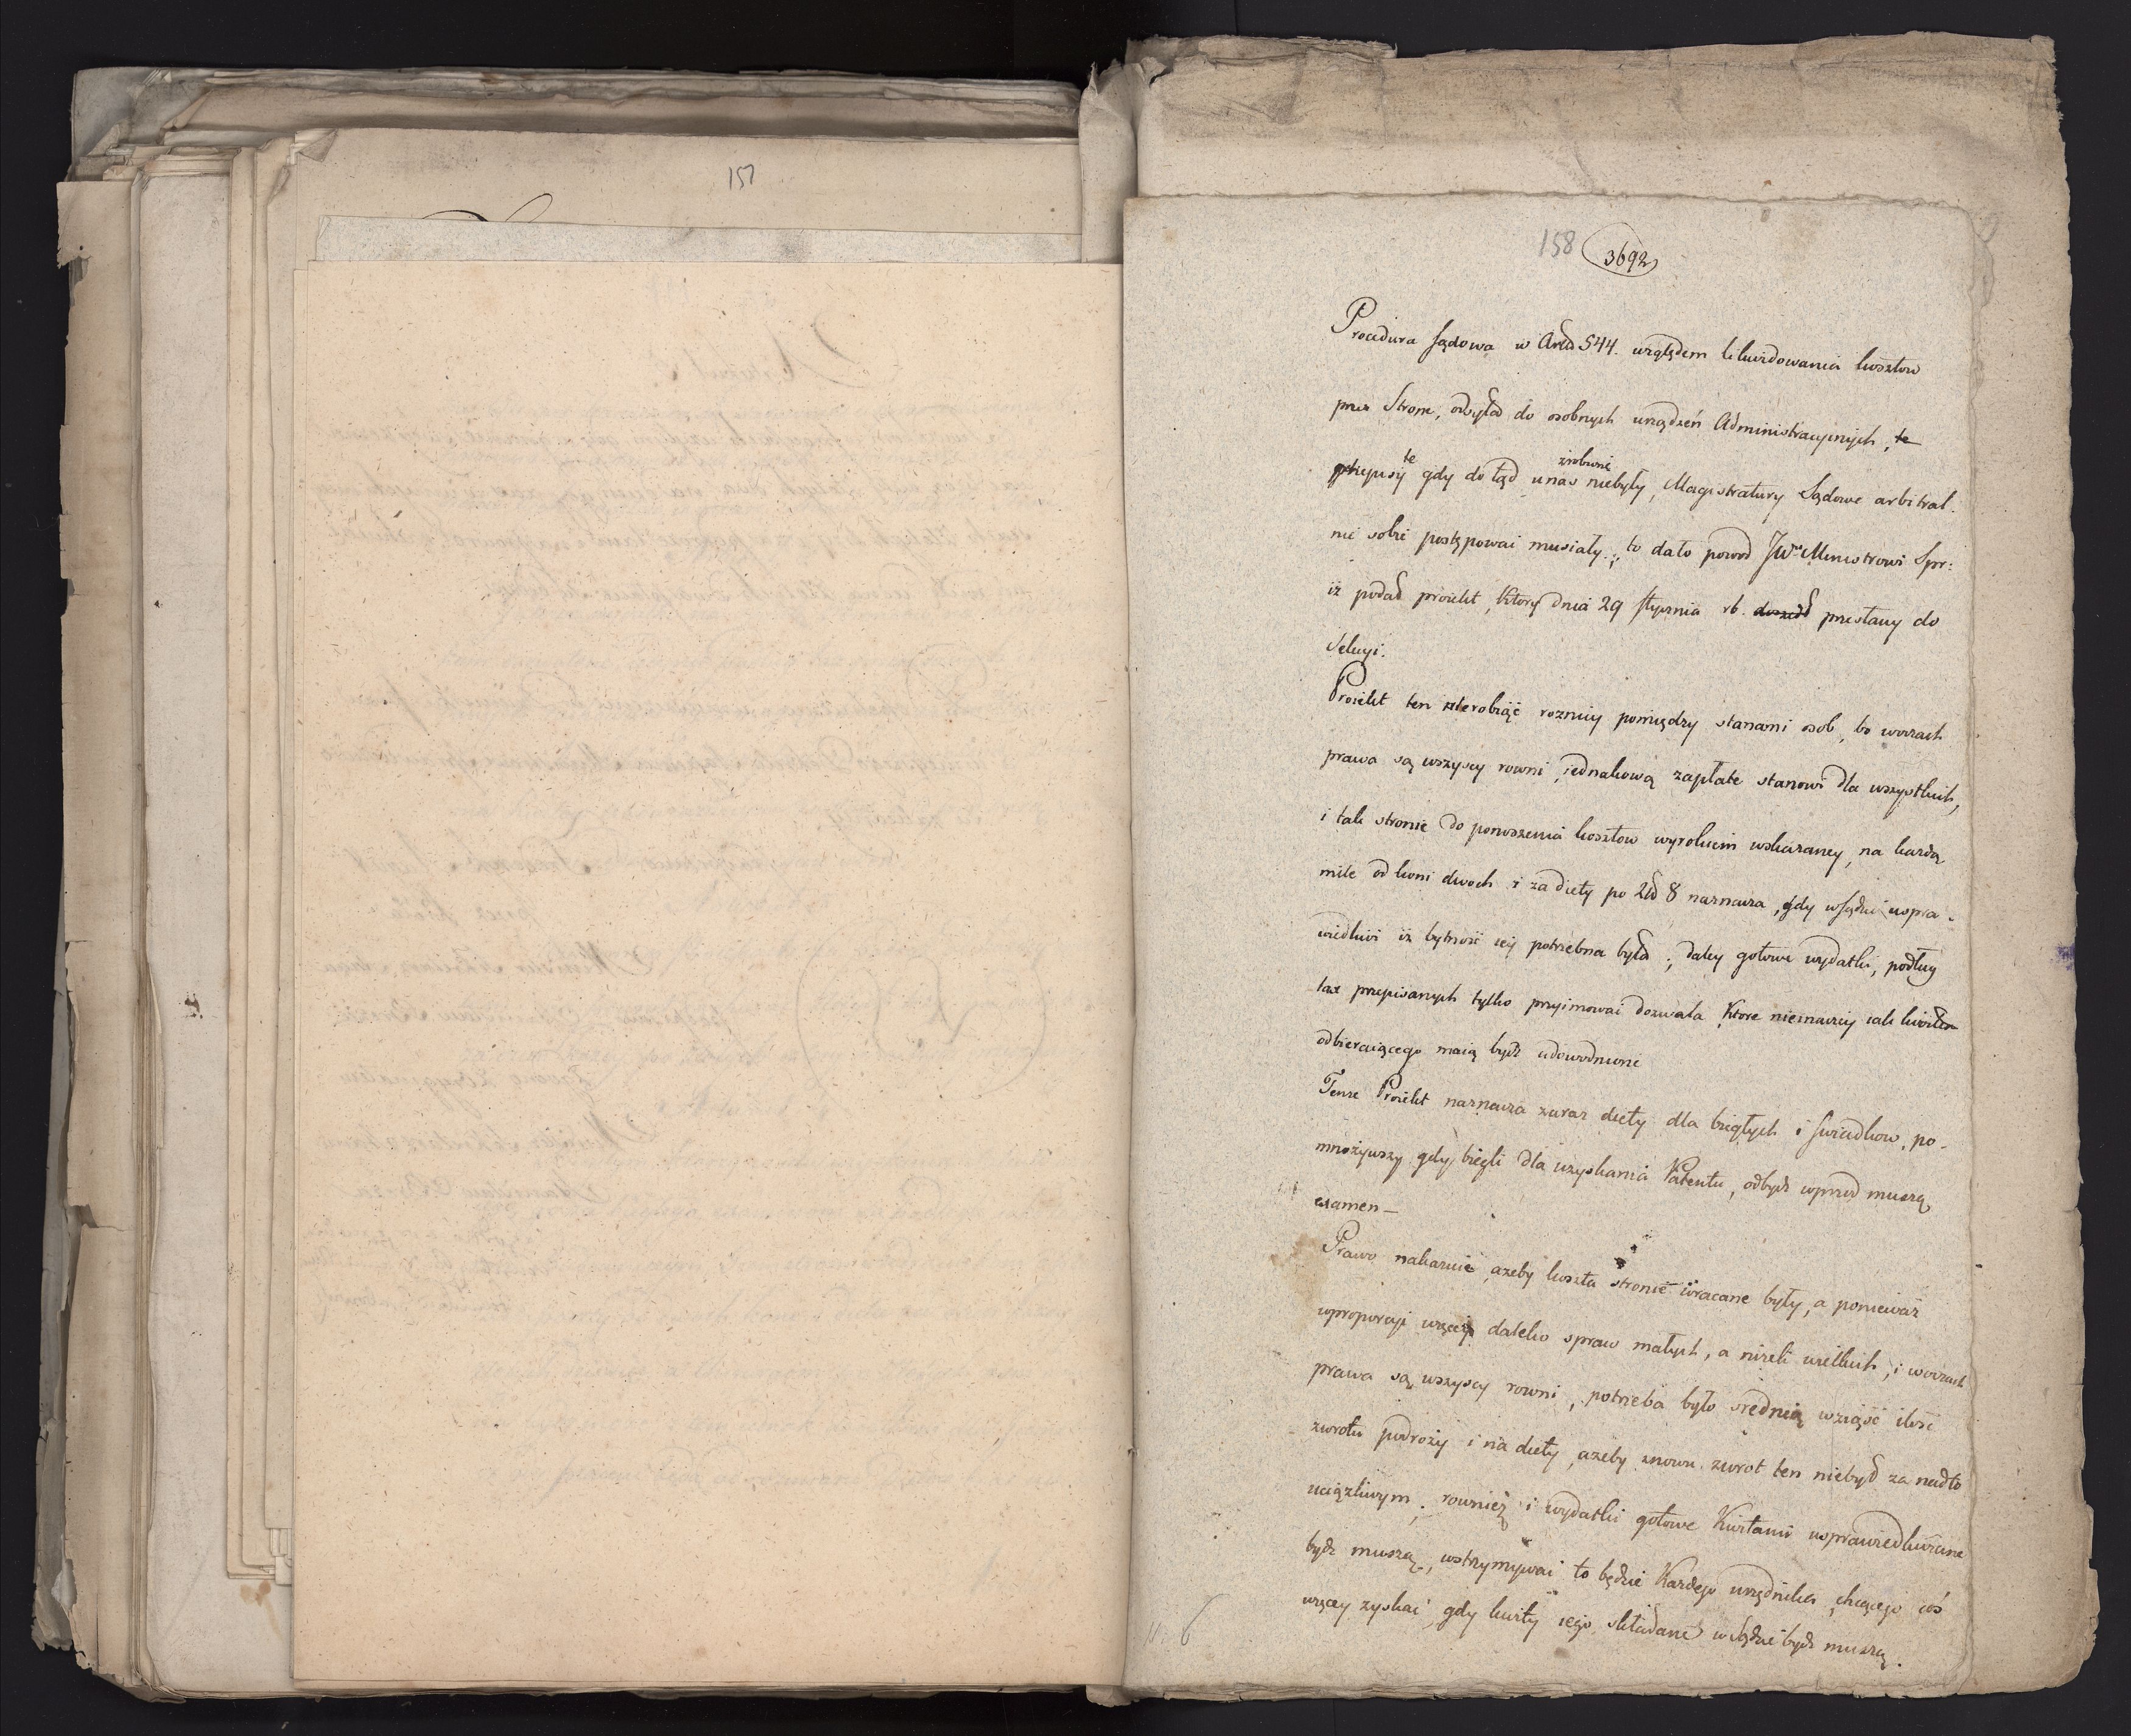 157
158 3692
Procedura sądowa w Artd 544. względem likwidowania kosztow
przez Strone, odsyła do osobnych urządzeń Administracyinych, te
przepisy te gdy do tąd u nas zrobione niebyły, Magistratury Sądowe arbitral-
nie sobie postępować musiały; to dało powod JWu Ministrowi Spr:
iż podał proiekt, ktory dnia 29 stycznia rb. doszedł przesłany do
Sekcyi.
Proiekt ten nierobiąc roznicy pomiędzy stanami osob, bo w oczach
prawa są wszyscy rowni, jednakową zapłate stanowi dla wszystkich,
i tak stronie do ponoszenia kosztow wyrokiem wskazaney, na kazdą
mile od koni dwoch i za diety po Zł 8 naznacza, gdy w sądzie uspra-
wiedliwi iż bytność iey potrzebna była; daley gotowe wydatki, podług
tax przepisanych tylko przyimować dozwala, ktore nieinaczey iak kwitem
odbieraiącego maią bydz udowodnione
Tenze Proiekt naznacza zaraz diety dla biegłych i swiadkow, po-
mnożywszy gdy biegli dla uzyskania Patentu, odbydz wprzod muszą
examen —
Prawo nakazuie, azeby koszta stronie wracane były, a ponieważ
w proporcyi więcey daleko spraw małych, a nizeli wielkich, i w oczach
prawa są wszyscy rowni, potrzeba było srednią wziąść ilość
zwrotu podrozy i na diety, azeby znowu zwrot ten niebył za nadto
uciązliwym; rownież i wydatki gotowe Kwitami usprawiedliwione
bydz muszą, wstrzymywać to będzie Kazdego urzędnika, chcącego coś
więcey zyskać, gdy kwity iego składane w sądzie bydz muszą.